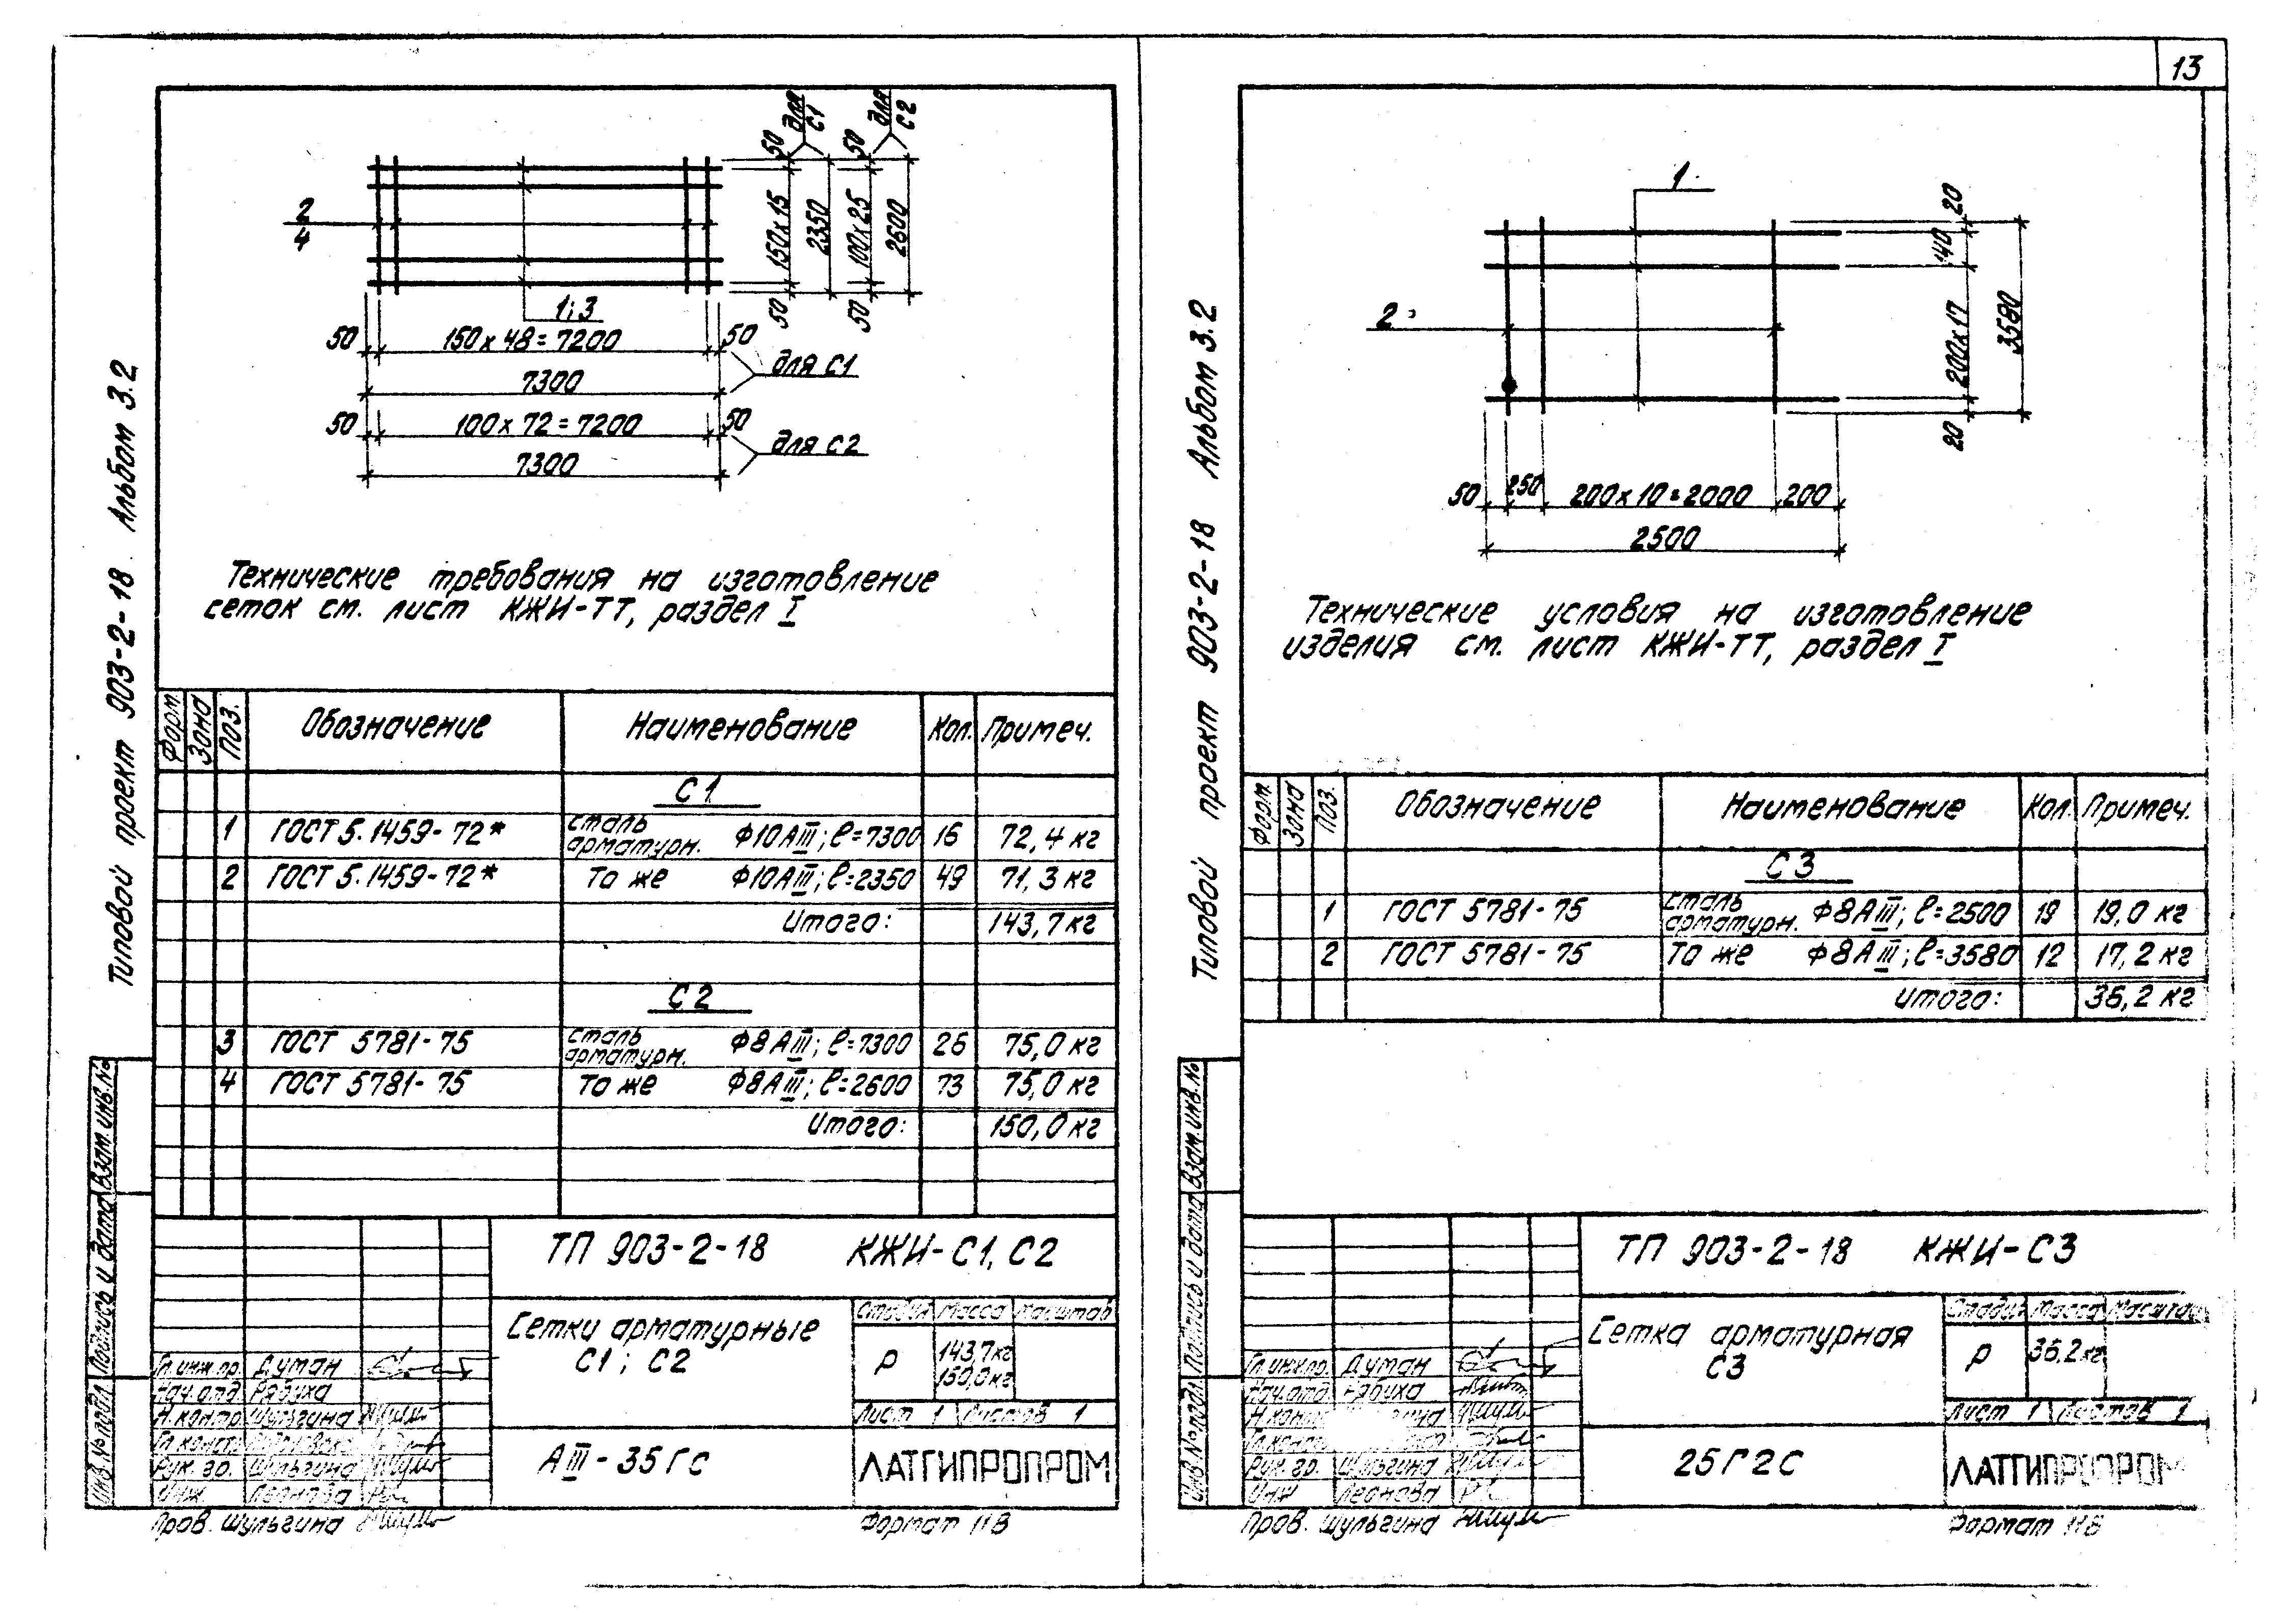 13
Типовой проект 903-2-18 Альбом 3.2
2
4
1; 3
50
150 x 48 = 7200
50
7300
для С1
50
100 x 72 = 7200
50
7300
для С2
50
150 x 15
50
2350
для С1
50
100 x 25
50
2600
для С2
Технические требования на изготовление
сеток см. лист КЖИ-ТТ, раздел I
Форм. Зона Поз. Обозначение Наименование Кол. Примеч.
С1
1 ГОСТ 5.1459-72* сталь арматурн. Ф10АIII; ℓ=7300 16 72,4 кг
2 ГОСТ 5.1459-72* То же Ф10АIII; ℓ=2350 49 71,3 кг
Итого: 143,7 кг
С2
3 ГОСТ 5781-75 сталь арматурн. Ф8АIII; ℓ=7300 26 75,0 кг
4 ГОСТ 5781-75 То же Ф8АIII; ℓ=2600 73 75,0 кг
Итого: 150,0 кг
ТП 903-2-18 КЖИ-С1, С2
Сетки арматурные
С1; С2
Стадия Масса Масштаб
Р 143,7кг
150,0кг
Лист 1 Листов 1
АIII-35ГС
ЛАТГИПРОПРОМ
Гл.инж.пр. Думан
Нач.отд. Рябиха
Н.контр. Шульгина
Гл.констр.
Рук. гр. Шульгина
Инж Леонова
Пров. Шульгина
Формат 11В
Инв.№подл. Подпись и дата Взам.инв.№
Типовой проект 903-2-18 Альбом 3.2
1
2
20
140
200x17
20
3580
50
250
200 x 10 = 2000
200
2500
Технические условия на изготовление
изделия см. лист КЖИ-ТТ, раздел I
Форм. Зона Поз. Обозначение Наименование Кол. Примеч.
С3
1 ГОСТ 5781-75 сталь арматурн. Ф8АIII; ℓ=2500 19 19,0 кг
2 ГОСТ 5781-75 То же Ф8АIII; ℓ=3580 12 17,2 кг
Итого: 36,2 кг
ТП 903-2-18 КЖИ-С3
Сетка арматурная
С3
Стадия Масса Масштаб
Р 36,2 кг
Лист 1 Листов 1
25Г2С
ЛАТГИПРОПРОМ
Гл.инж.пр. Думан
Нач.отд. Рябиха
Н.контр.
Гл.конст.
Рук. гр. Шульгина
Инж Леонова
Пров. Шульгина
Формат 11В
Инв.№подл. Подпись и дата Взам.инв.№